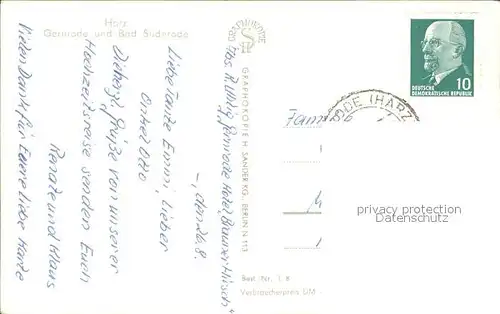 Harz
Gernrode und Bad Suderode
Abs. R. Uhlig, Gernrode Hotel „Brauner Hirsch"
-, den 26.8.
Liebe Tante Emmi, lieber
Onkel Otto,
Vielherzl. Grüße von unserer
Hochzeitsreise senden Euch
Renate und Klaus
Vielen Dank für Euere liebe Karte
GRAPHOKOPIE
GRAPHOKOPIE H. SANDER KG. BERLIN N 113
Best.-Nr. 1 8
Verbraucherpreis DM
DEUTSCHE
DEMOKRATISCHE REPUBLIK
10
RODE (HARZ
Fam
privacy protection
datenschutz